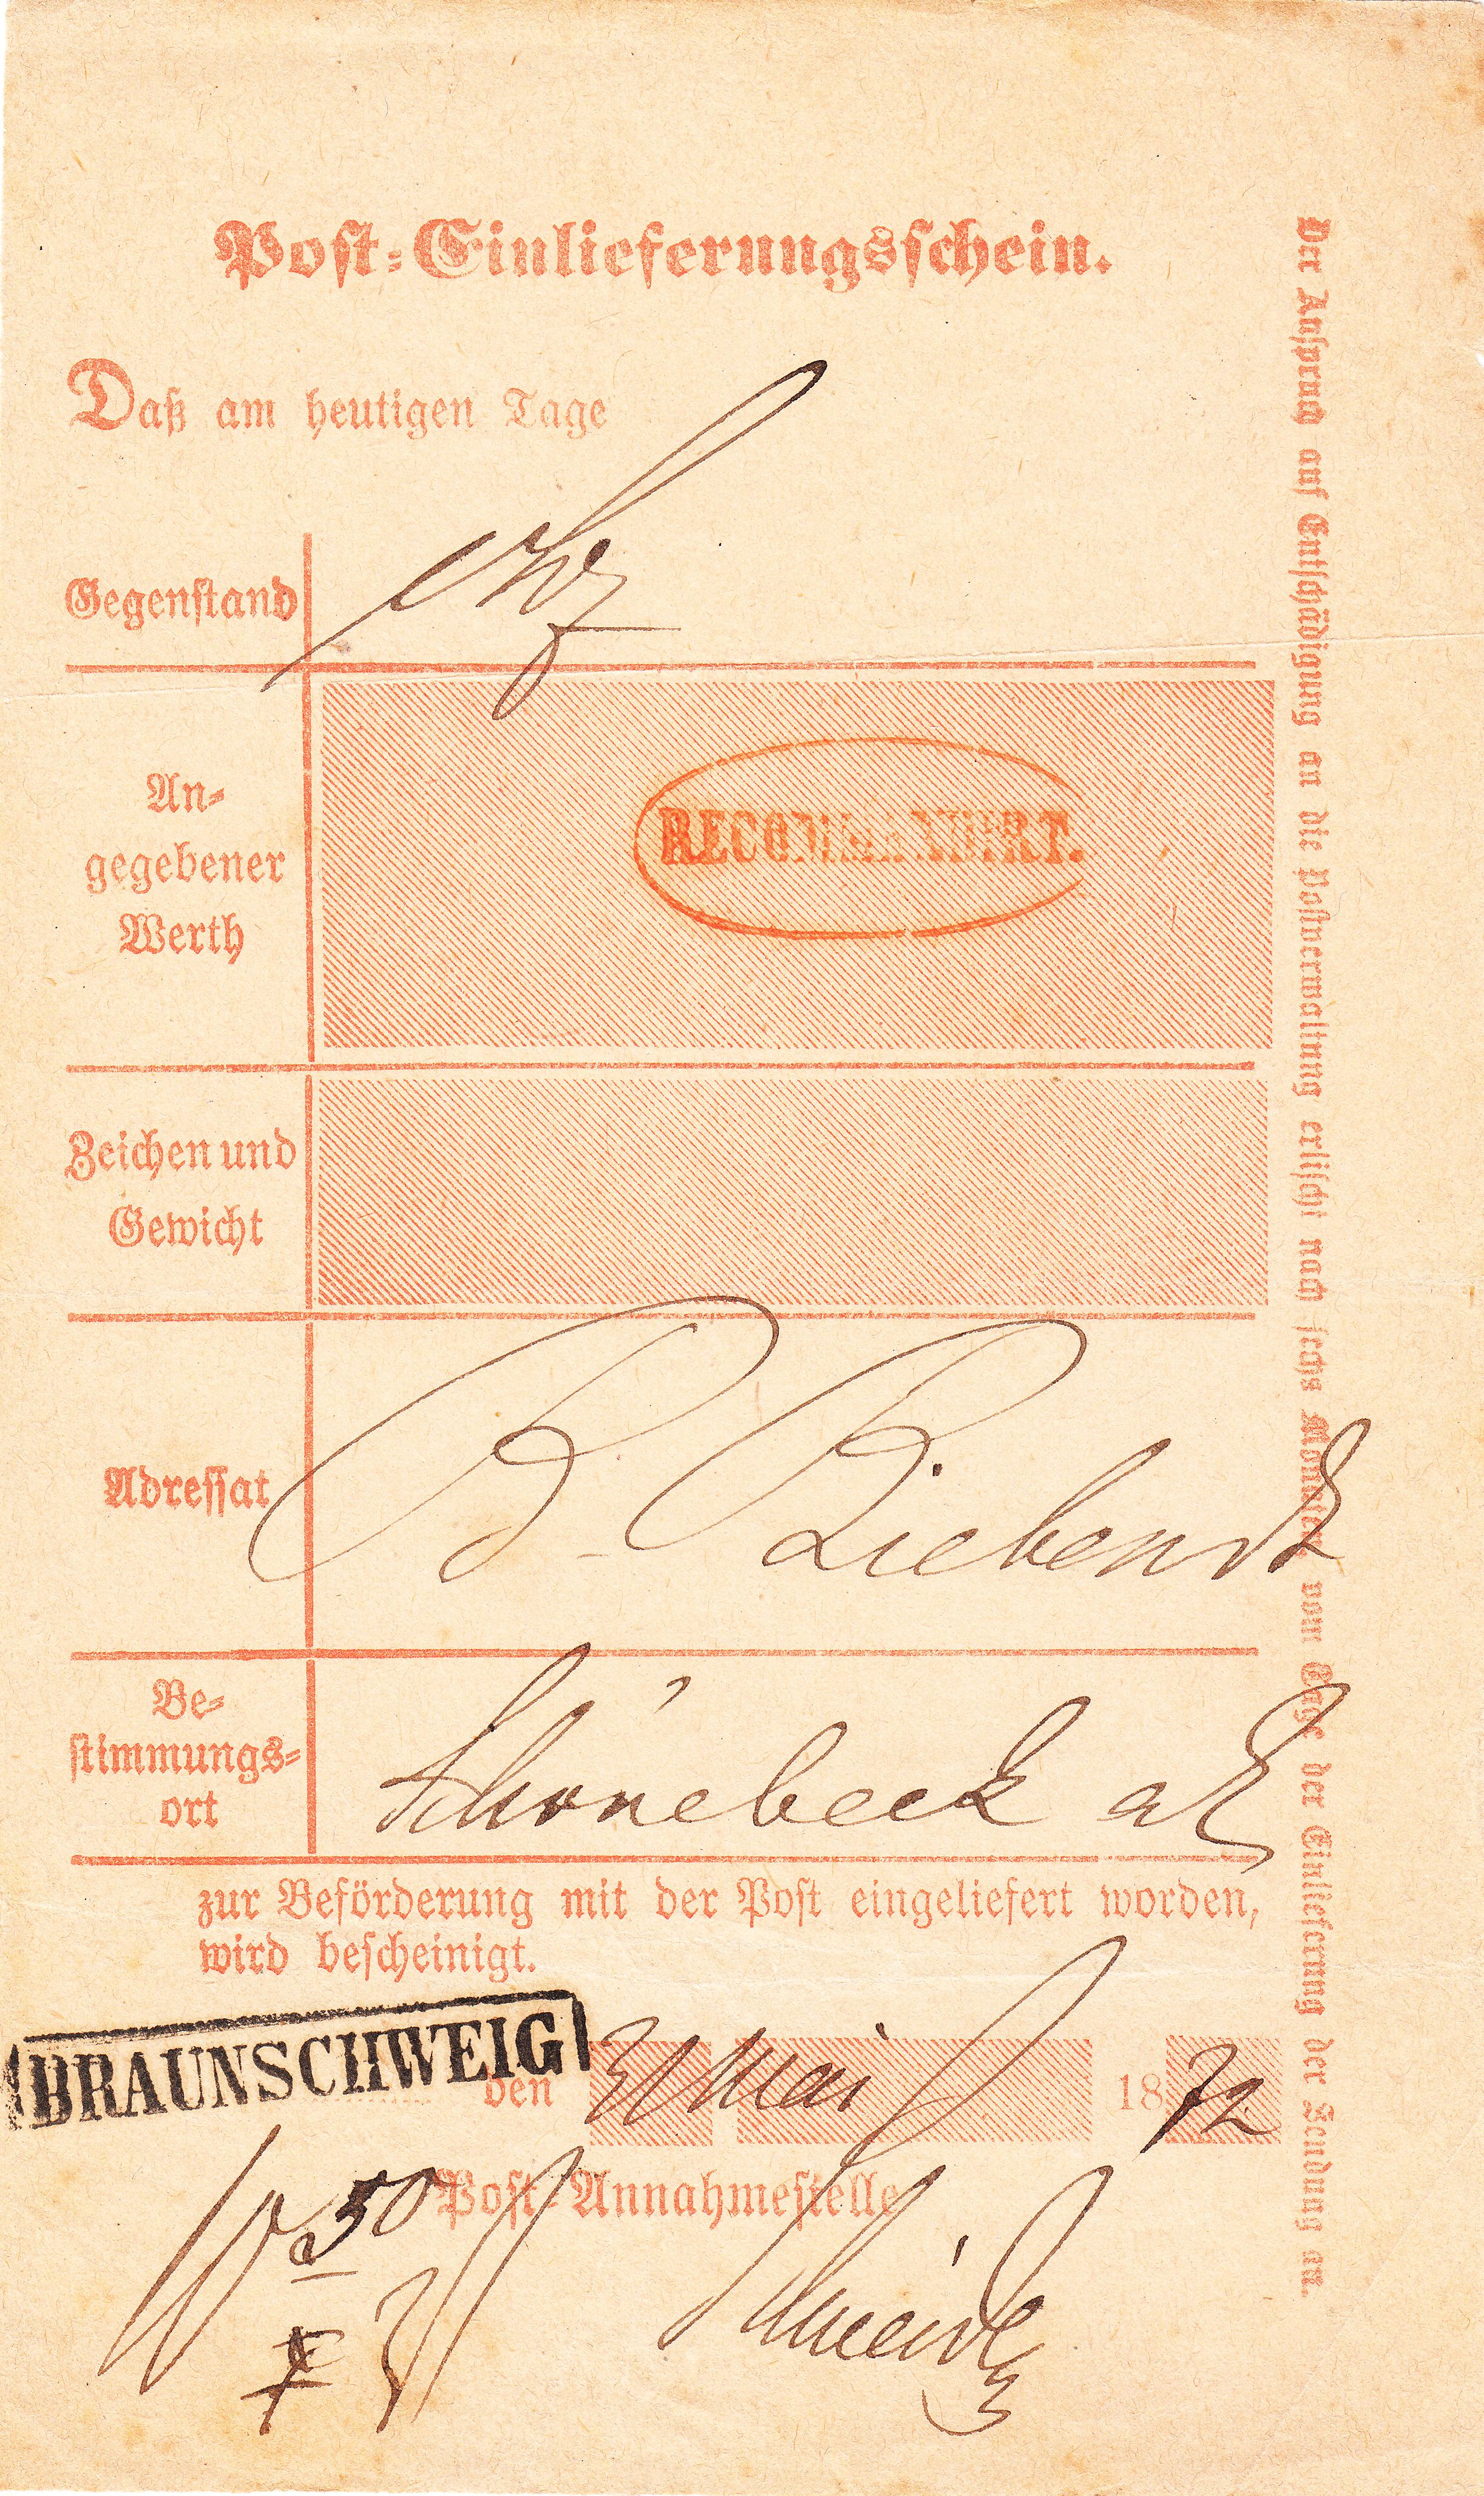 Post-Einlieferungsschein.
Daß am heutigen Tage
Gegenstand
An-
gegebener
Werth
RECOMMANDIRT.
Zeichen und
Gewicht
Adressat
B. Liebendt
Be-
stimmungs-
ort
Schönebeck a/E
zur Beförderung mit der Post eingeliefert worden,
wird bescheinigt.
BRAUNSCHWEIG
den 31 Mai 1872
50
Post-Annahmestelle
Der Anspruch auf Entschädigung an die Postverwaltung erlischt nach sechs Monaten vom Tage der Einlieferung der Sendung an.